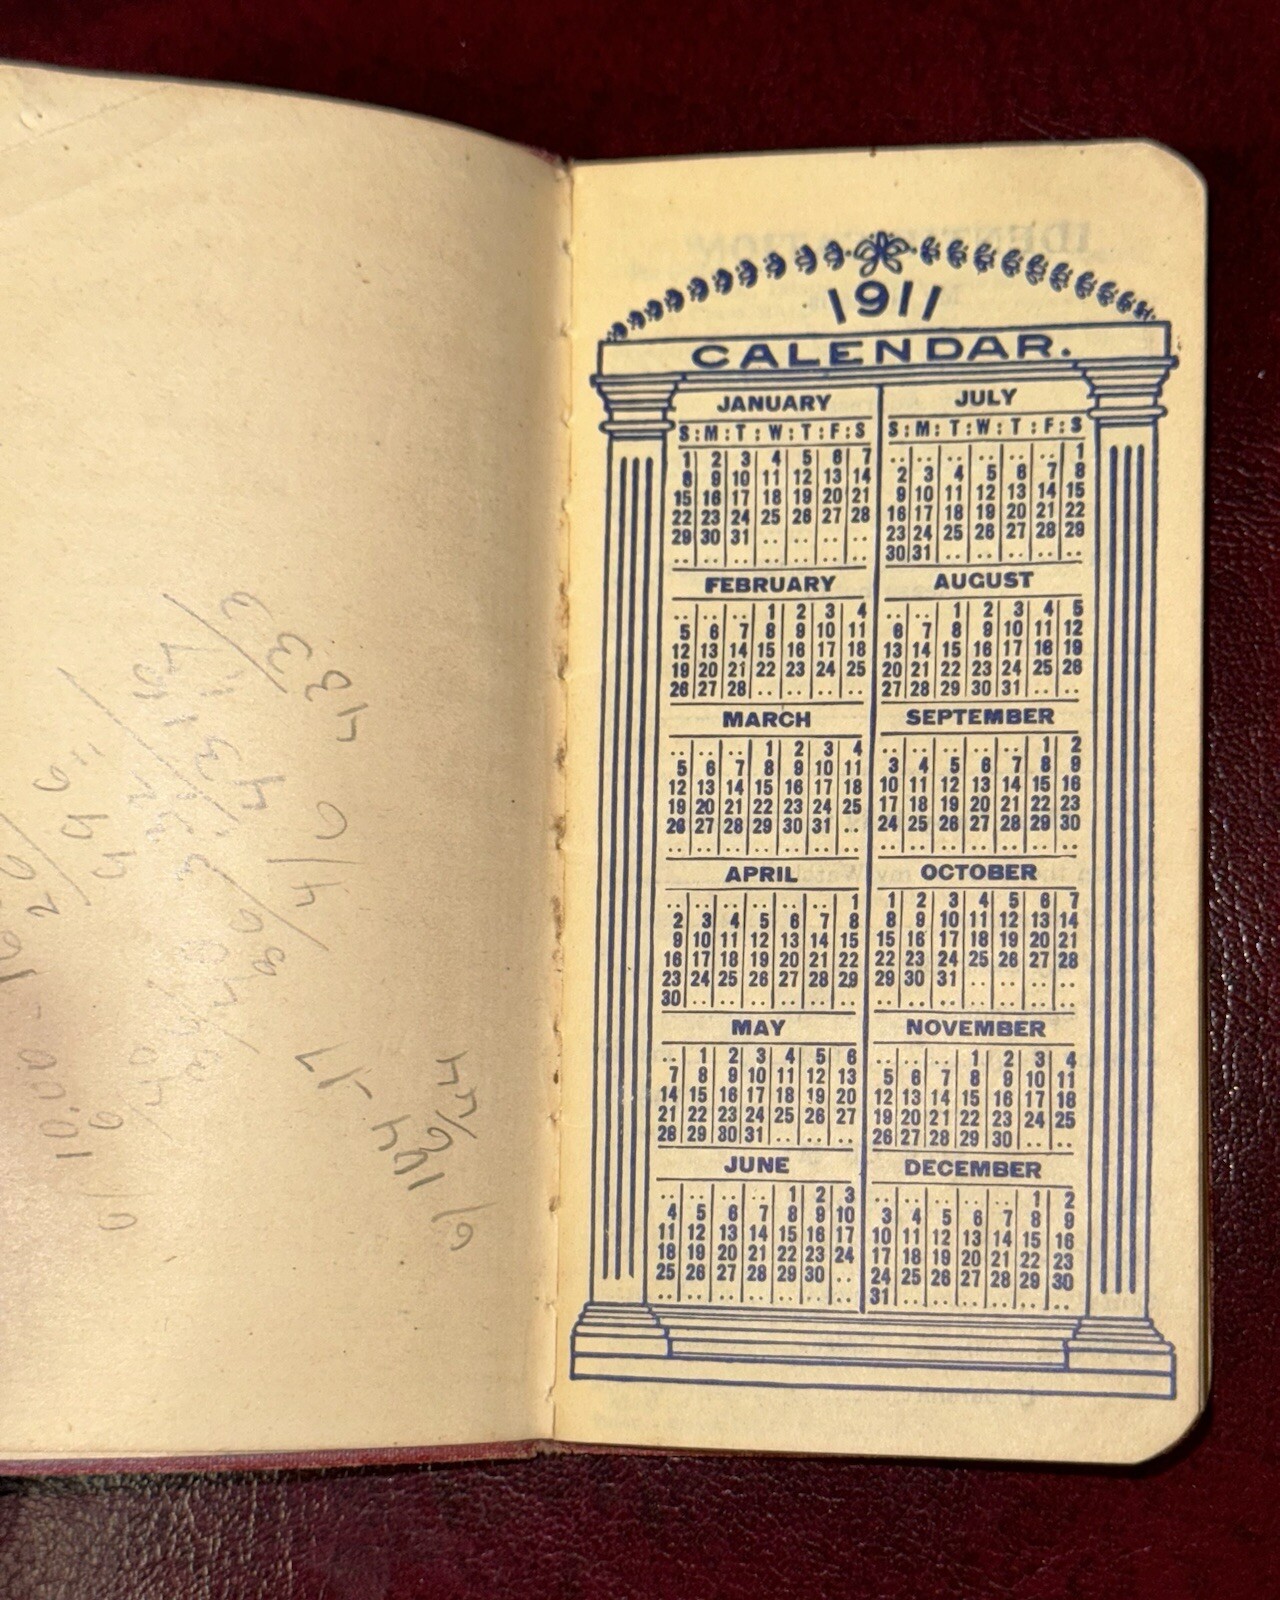 1911
CALENDAR.
JANUARY
S : M : T : W : T : F : S
1 2 3 4 5 6 7
8 9 10 11 12 13 14
15 16 17 18 19 20 21
22 23 24 25 26 27 28
29 30 31 .. .. .. ..
.. .. .. .. .. .. ..
FEBRUARY
.. .. .. 1 2 3 4
5 6 7 8 9 10 11
12 13 14 15 16 17 18
19 20 21 22 23 24 25
26 27 28 .. .. .. ..
MARCH
.. .. .. 1 2 3 4
5 6 7 8 9 10 11
12 13 14 15 16 17 18
19 20 21 22 23 24 25
26 27 28 29 30 31 ..
.. .. .. .. .. .. ..
APRIL
.. .. .. .. .. .. 1
2 3 4 5 6 7 8
9 10 11 12 13 14 15
16 17 18 19 20 21 22
23 24 25 26 27 28 29
30 .. .. .. .. .. ..
MAY
.. 1 2 3 4 5 6
7 8 9 10 11 12 13
14 15 16 17 18 19 20
21 22 23 24 25 26 27
28 29 30 31 .. .. ..
JUNE
.. .. .. .. 1 2 3
4 5 6 7 8 9 10
11 12 13 14 15 16 17
18 19 20 21 22 23 24
25 26 27 28 29 30 ..
.. .. .. .. .. .. ..
JULY
S : M : T : W : T : F : S
.. .. .. .. .. .. 1
2 3 4 5 6 7 8
9 10 11 12 13 14 15
16 17 18 19 20 21 22
23 24 25 26 27 28 29
30 31 .. .. .. .. ..
AUGUST
.. .. 1 2 3 4 5
6 7 8 9 10 11 12
13 14 15 16 17 18 19
20 21 22 23 24 25 26
27 28 29 30 31 .. ..
SEPTEMBER
.. .. .. .. .. 1 2
3 4 5 6 7 8 9
10 11 12 13 14 15 16
17 18 19 20 21 22 23
24 25 26 27 28 29 30
.. .. .. .. .. .. ..
OCTOBER
1 2 3 4 5 6 7
8 9 10 11 12 13 14
15 16 17 18 19 20 21
22 23 24 25 26 27 28
29 30 31 .. .. .. ..
.. .. .. .. .. .. ..
NOVEMBER
.. .. .. 1 2 3 4
5 6 7 8 9 10 11
12 13 14 15 16 17 18
19 20 21 22 23 24 25
26 27 28 29 30 .. ..
DECEMBER
.. .. .. .. .. 1 2
3 4 5 6 7 8 9
10 11 12 13 14 15 16
17 18 19 20 21 22 23
24 25 26 27 28 29 30
31 .. .. .. .. .. ..